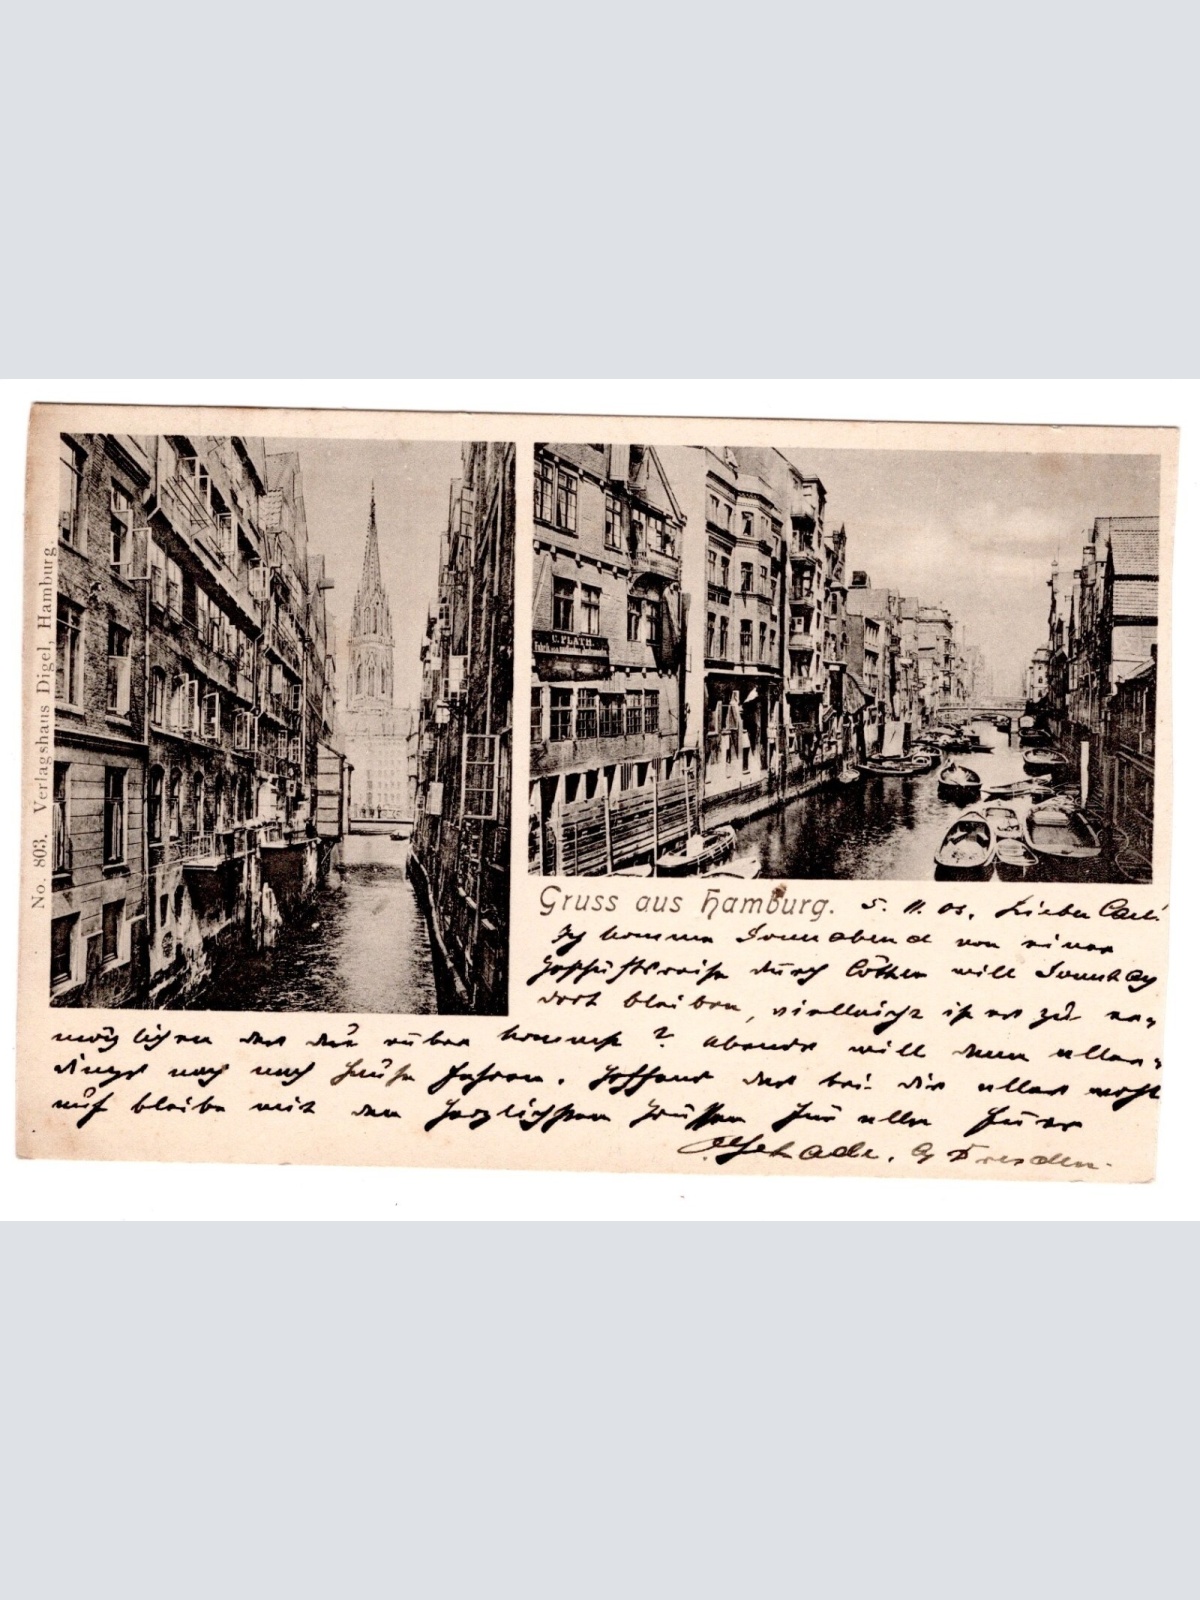 No. 803. Verlagshaus Digel, Hamburg.
C. PLATH.
Gruss aus Hamburg. 5. 11. 03. Lieber Carl!
Ich komme Sonnabend von einer
Geschäftsreise durch Cöthen will Sonntag
dort bleiben, vielleicht ist es zu er-
möglichen das du rüber kommst? Abends will dann aller-
dings noch nach Hause fahren. Hoffend das bei dir alles wohl
auf bleibe mit den herzlichsten Grüssen für alle Euer
Dresden.